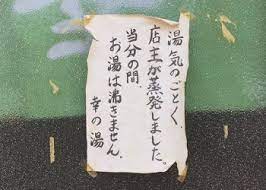 湯気のごとく、
店主が蒸発しました。
当分の間、
お湯は沸きません。
幸の湯